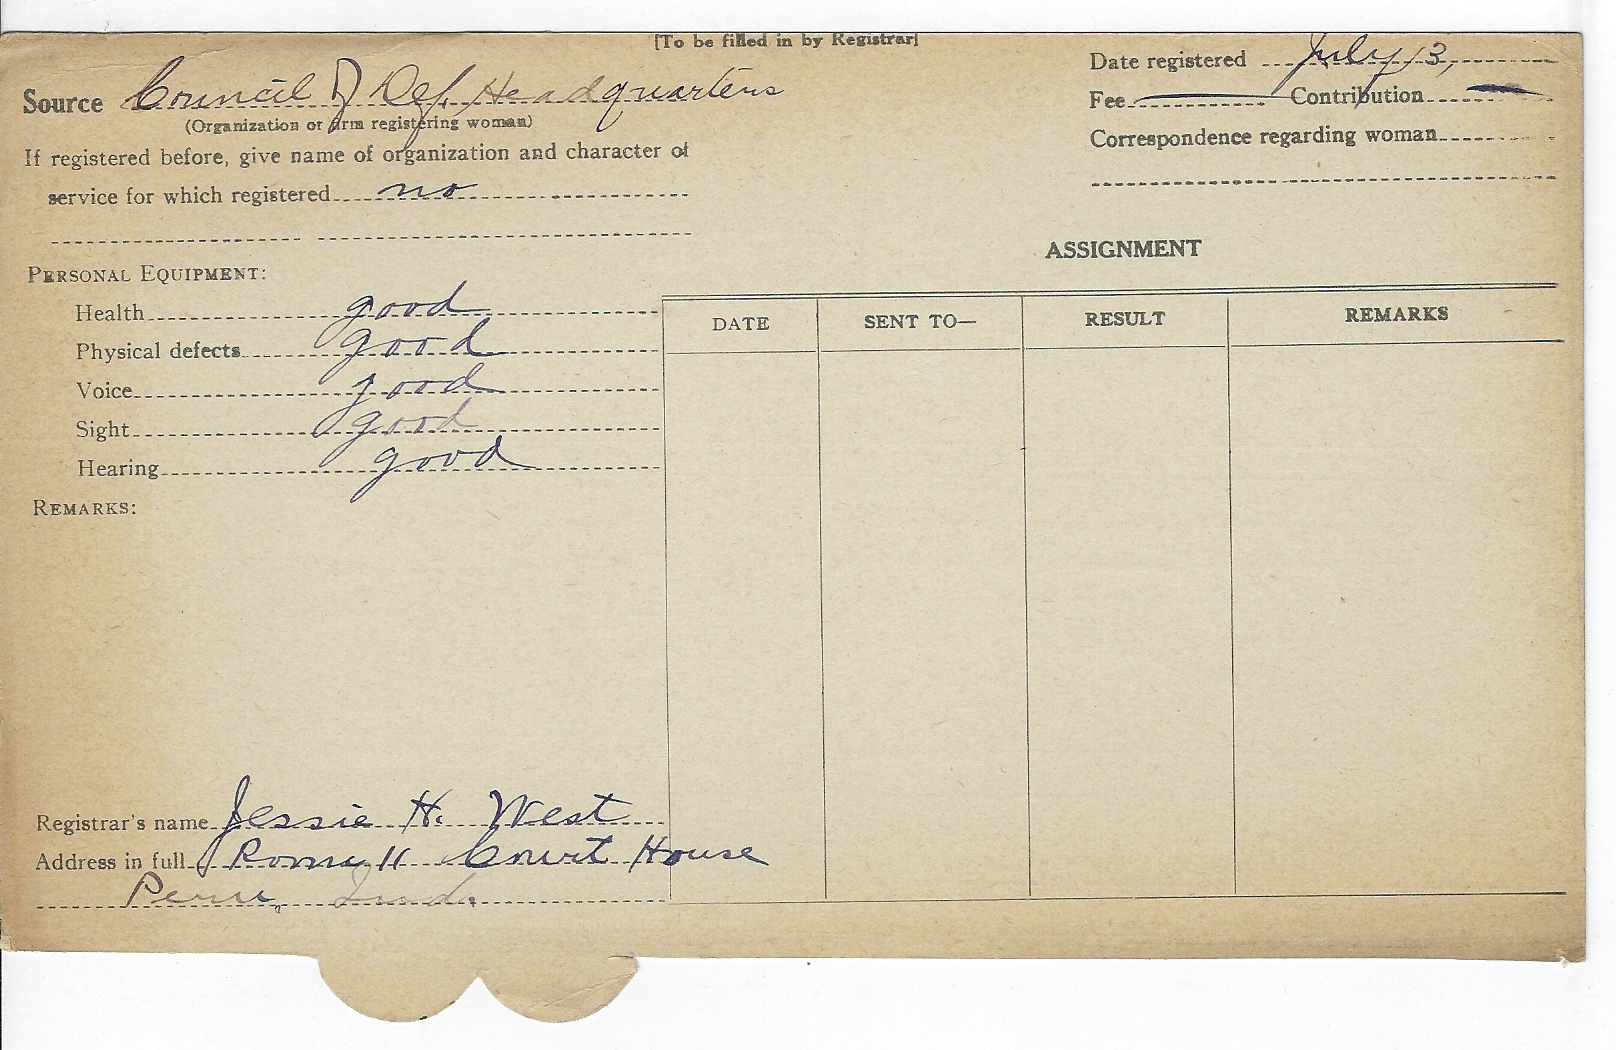 [To be filled in by Registrar]
Source Council of Def. Headquarters
(Organization or firm registering woman)
If registered before, give name of organization and character of
service for which registered no
Date registered July 13,
Fee — Contribution —
Correspondence regarding woman
PERSONAL EQUIPMENT:
Health good
Physical defects good
Voice good
Sight good
Hearing good
REMARKS:
ASSIGNMENT
DATE SENT TO— RESULT REMARKS
Registrar's name Jessie H. West
Address in full Room 11 Court House
Peru, Ind.